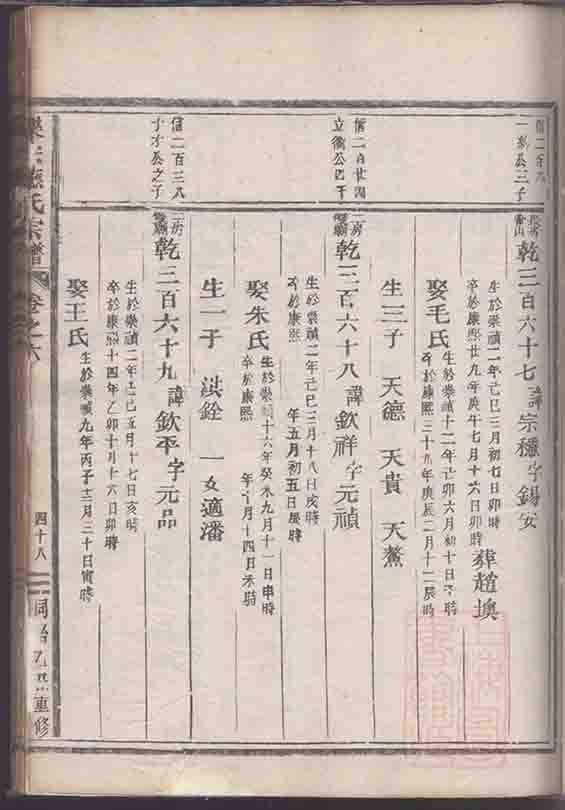 一公三子
乾三百六十七 諱宗 字錫安
生於崇禎二年己巳三月初七日卯時
卒於康熙廿九年庚午七月十六日卯時 葬趙墺
娶毛氏
生於崇禎十二年己卯六月初十日時
卒於康熙三十九年庚辰二月十二辰時
生三子 天德 天貴 天鰲
信二百廿四
立公四子
乾三百六十八 諱欽祥 字元禎
生於崇禎二年己巳三月十八日亥時
卒於康熙 年五月初五日辰時
娶朱氏
生於崇禎十六年癸未九月十一日申時
卒於康熙 年十月十四日未時
生一子 洪銓 一女適潘
信二百三八
子才公之子
乾三百六十九 諱欽平 字元品
生於崇禎二年己巳五月十七日亥時
卒於康熙十四年乙卯十月十六日卯時
娶王氏
生於崇禎九年丙子十二月三十日寅時
氏宗譜
卷之六
四十八
同治 重修